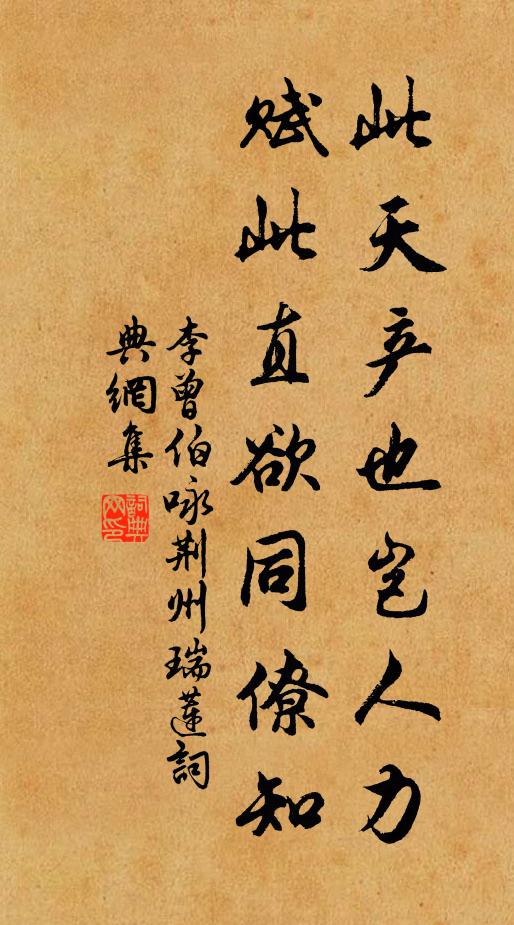 此天产也岂人力
赋此直欲同僚知
李曾伯咏荆州瑞莲詞
典網集
詞典网印